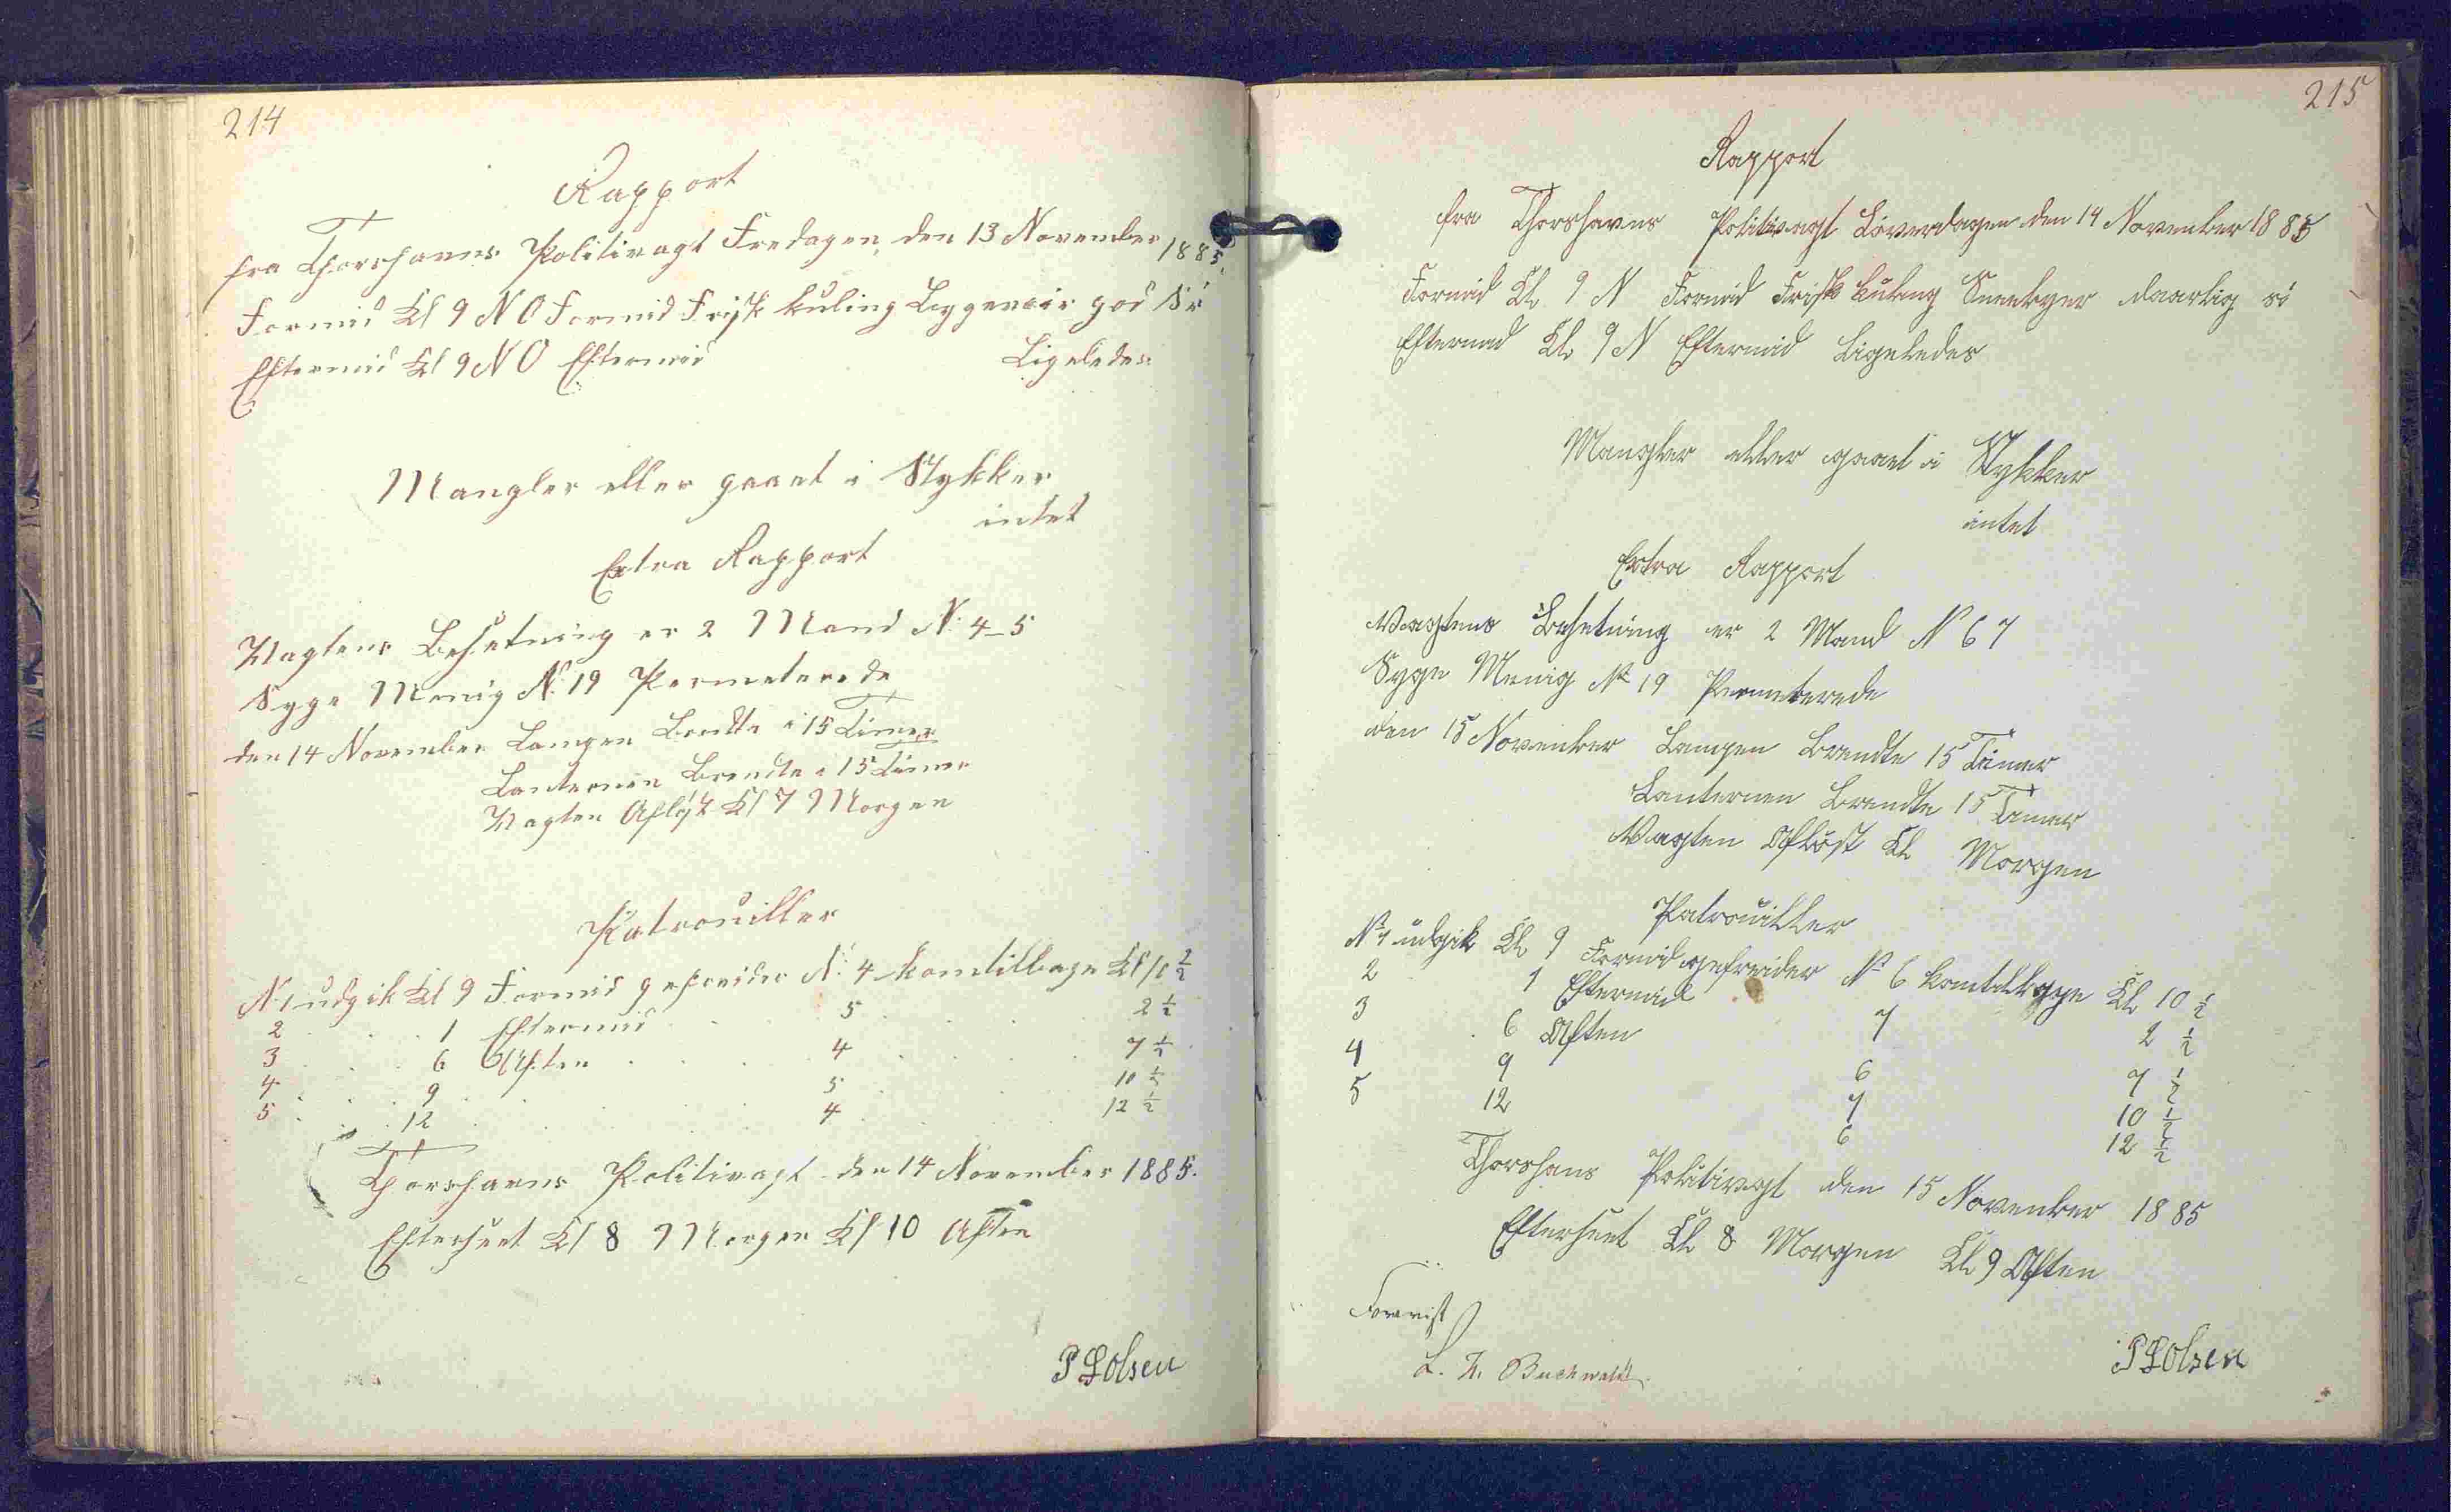 214
Rapport
fra Thorshavns Politivagt Fredagen den 13 November 1885.
Formid Kl 9 N O Formid Frisk kuling Byger god Sö
Eftermid Kl 9 N O Eftermid Ligeledes
Mangler eller gaaet i Stykker
intet
Extra Rapport
Vagtens Besetning er 2 Mand No 4-5
Syge Menig No 19 Permeterede
den 14 November Lampen Brendte i 15 Timer
Lanternen Brendte i 15 Timer
Vagten Aflöst Kl 7 Morgen
Patrouiller
No 1 udgik Kl 9 Formid gefreider No 4 komtilbage Kl 10 1/2
2 . . . 1 Eftermid . . 5 . . . 2 1/2
3 . . . 6 Aften . . . 4 . . . 7 1/2
4 . . . 9 . . . 5 . . . 10 1/2
5 . . . 12 . . . 4 . . . 12 1/2
Thorshavns Politivagt den 14 November 1885.
Efterseet Kl 8 Morgen Kl 10 Aften
P Olsen
215
Rapport
fra Thorshavns Politivagt Löverdagen den 14 November 1885
Formid Kl. 9 N Formid Frisk kuling Sneebyer daarlig sö
Eftermad Kl. 9 N Eftermid Ligeledes
Mangler eller gaaet i Stykker
intet
Extra Rapport
Vagtens Besetning er 2 Mand No 6 7
Syge Menig No 19 Permeterede
den 15 November Lampen Brendte 15 Timer
Lanternen Brendte 15 Timer
Vagten Aflöst Kl. Morgen
Patrouiller
No 1 udgik Kl. 9 Formid gefreider No 6 komtilbage Kl. 10 1/2
2 1 Eftermid 7 2 1/2
3 6 Aften 6 7 1/2
4 9 7 10 1/2
5 12 6 12 1/2
Thorshans Politivagt den 15 November 1885
Efterseet Kl. 8 Morgen Kl. 9 Aften
Forevist
Buchwald
P Olsen